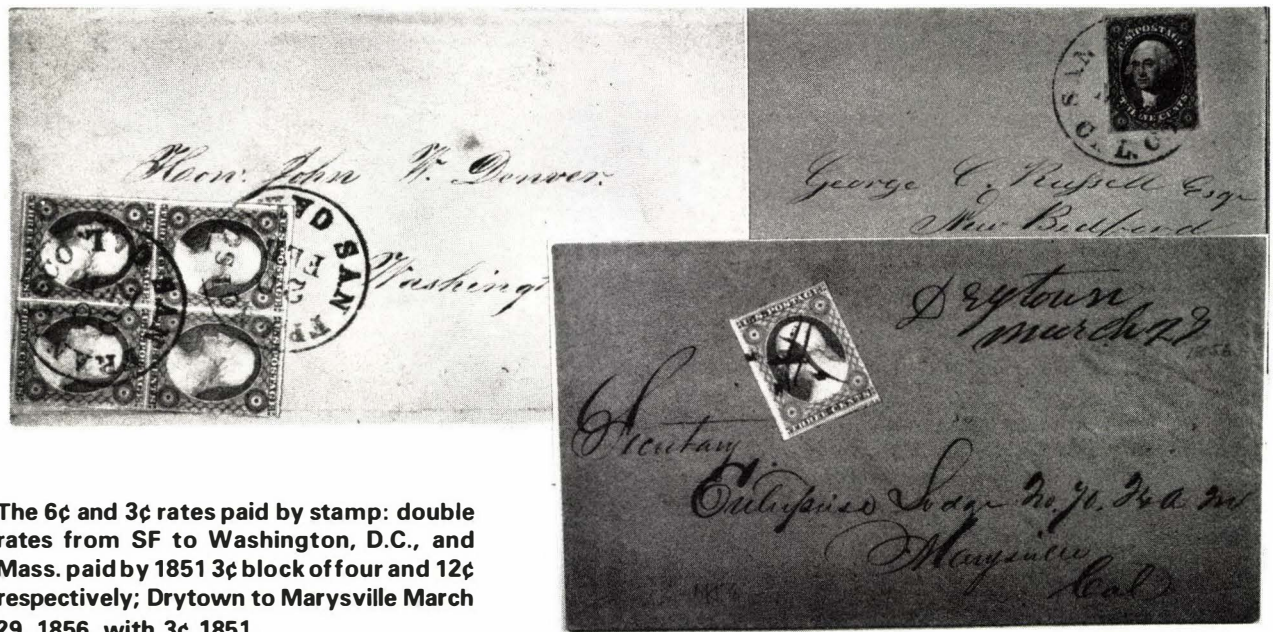 Hon. John W. Denver.
Washingt
SAN
CAL.
U.S. POSTAGE
George C. Russell Esqr
New Bedford
Drytown
March 29
1856
U.S. POSTAGE
THREE CENTS
Secretary
Enterprise Lodge No. 70. F & A M
Marysville
Cal
The 6¢ and 3¢ rates paid by stamp: double
rates from SF to Washington, D.C., and
Mass. paid by 1851 3¢ block of four and 12¢
respectively; Drytown to Marysville March
29, 1856, with 3¢ 1851.